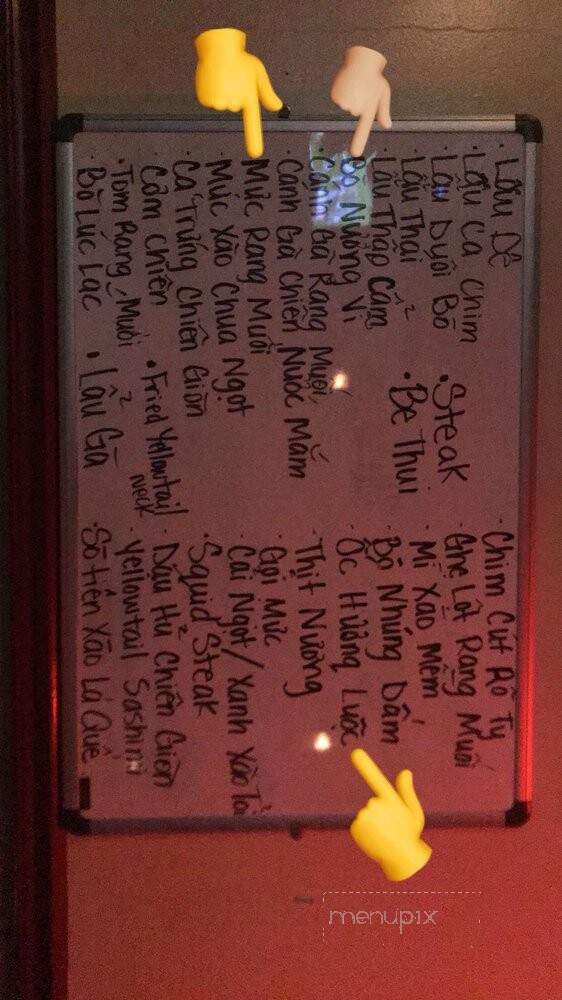 • Lẩu Dê
• Lẩu Cá Chim
• Lẩu Đuôi Bò
• Lẩu Thái
• Lẩu Thập Cẩm
Bò Nướng Vỉ
Cánh Gà Rang Muối
Cánh Gà Chiên Nước Mắm
• Mực Rang Muối
• Mực Xào Chua Ngọt
• Cá Trứng Chiên Giòn
Cơm Chiên
• Tôm Rang Muối
Bò Lúc Lắc
• Steak
• Bê Thui
• Fried Yellowtail Neck
• Lẩu Gà
• Chim Cút Rô Ty
Ghẹ Lột Rang Muối
• Mì Xào Mềm
• Bò Nhúng Dấm
Ốc Hương Luộc
• Thịt Nướng
Gỏi Mực
• Cải Ngọt/Xanh Xào Tỏi
• Squid Steak
• Đậu Hủ Chiên Giòn
• Yellowtail Sashimi
• Sò Tiên Xào Lá Quế
menupix